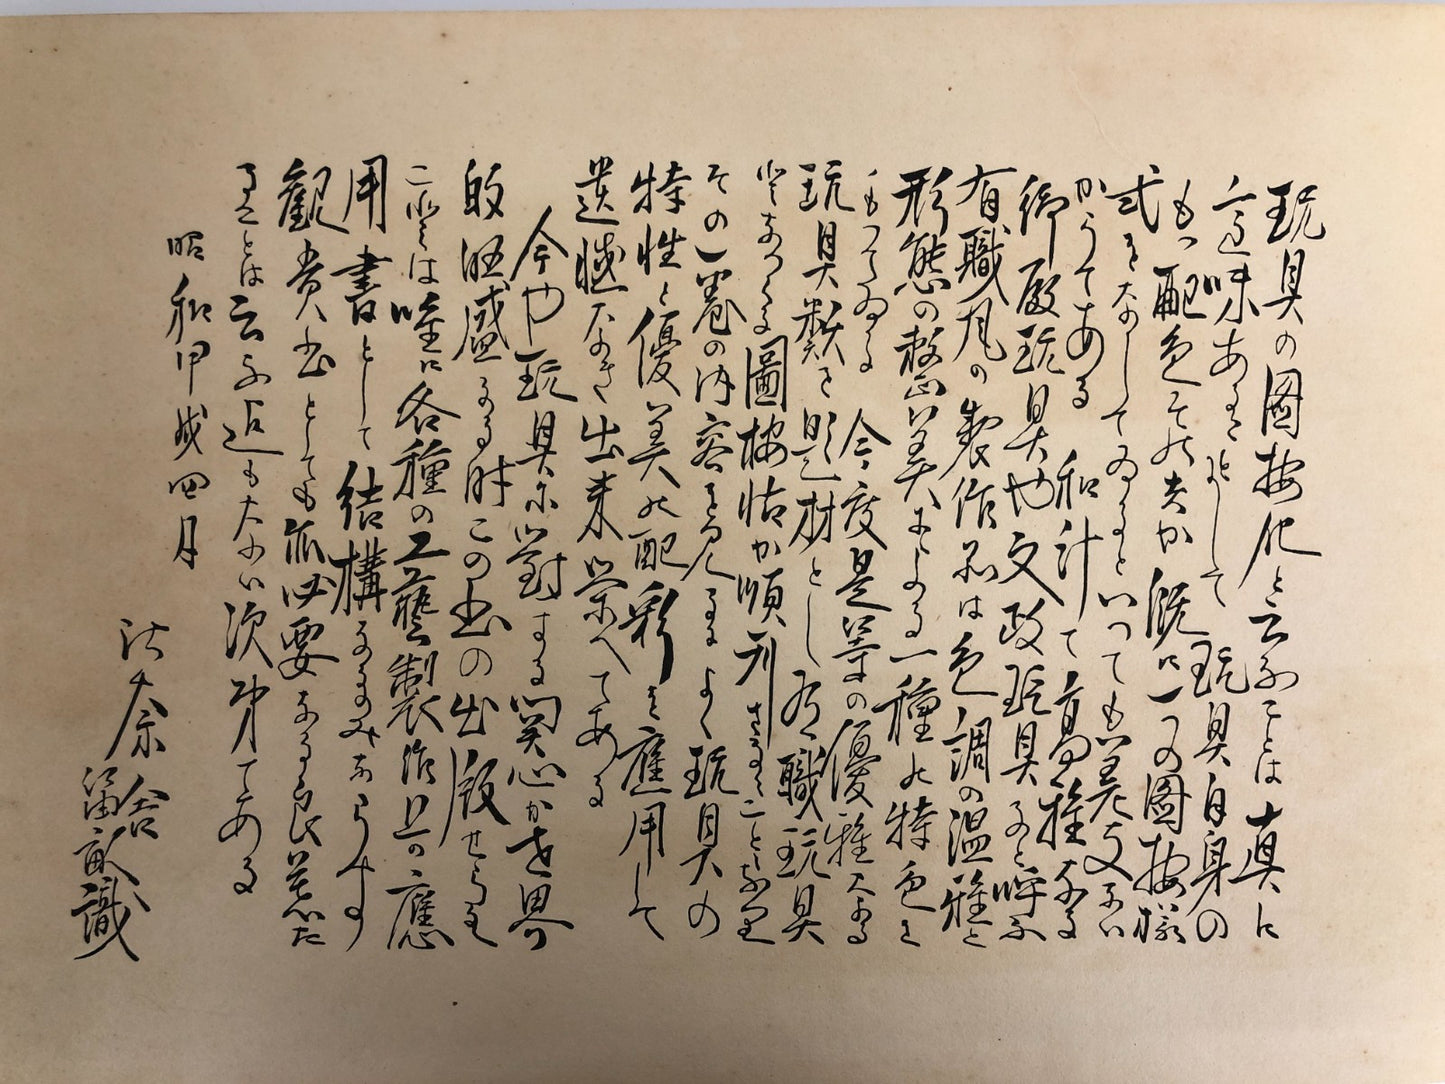 玩具の図按化と云ふことは真に
意味ある事にして 玩具自身の
もつ配色その夫か既に一の図按様
式をなしてゐるといつても差支ない
かうてある 和汁て高雅なる
御殿玩具や文政玩具なと呼ふ
有職風の製作品は色調の温雅と
形態の整美による一種の特色を
もつてゐる 今度是等の優雅なる
玩具類を題材とし有職玩具
図按帖か順刊さるゝことゝなり
その一巻の内容を見るによく玩具の
特性と優美の配彩を應用して
遺憾なき出来栄へてある
今や玩具に對する関心か世界
的旺盛なる時この書の出版せらるゝ
ことは唯に各種の工藝製作上の應
用書として結構なるのみならす
観賞書としても亦必要なる良著た
ることは云ふ迄も大い次第てある
昭和甲戌四月
識